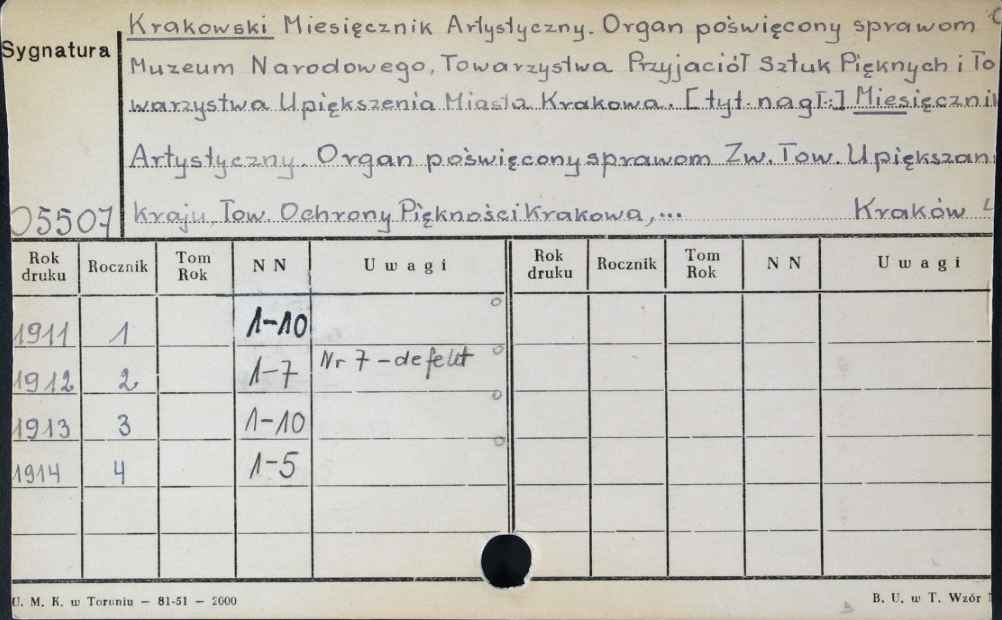 Krakowski Miesięcznik Artystyczny. Organ poświęcony sprawom
Sygnatura
Muzeum Narodowego, Towarzystwa Przyjaciół Sztuk Pięknych i To
warzystwa Upiększenia Miasta Krakowa. [tyt. nagł.:] Miesięcznik
Artystyczny. Organ poświęcony sprawom Zw. Tow. Upiększani
05507
Kraju, Tow. Ochrony Piękności Krakowa,... Kraków
Rok druku Rocznik Tom Rok N N Uwagi Rok druku Rocznik Tom Rok N N Uwagi
1911 1 1-10
1912 2 1-7 Nr 7 - defekt
1913 3 1-10
1914 4 1-5
U. M. K. w Toruniu — 81-51 — 2000 B. U. w T. Wzór